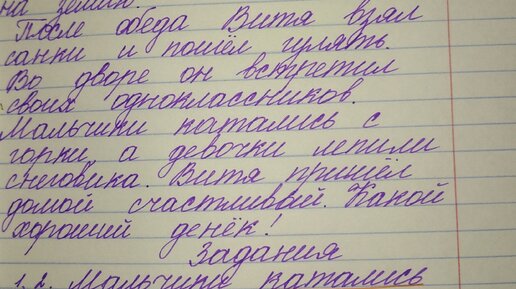 на землю.
После обеда Витя взял
санки и пошёл гулять.
Во дворе он встретил
своих одноклассников.
Мальчики катались с
горки, а девочки лепили
снеговика. Витя пришёл
домой счастливый. Какой
хороший денёк!
Задания
1. Мальчики катались